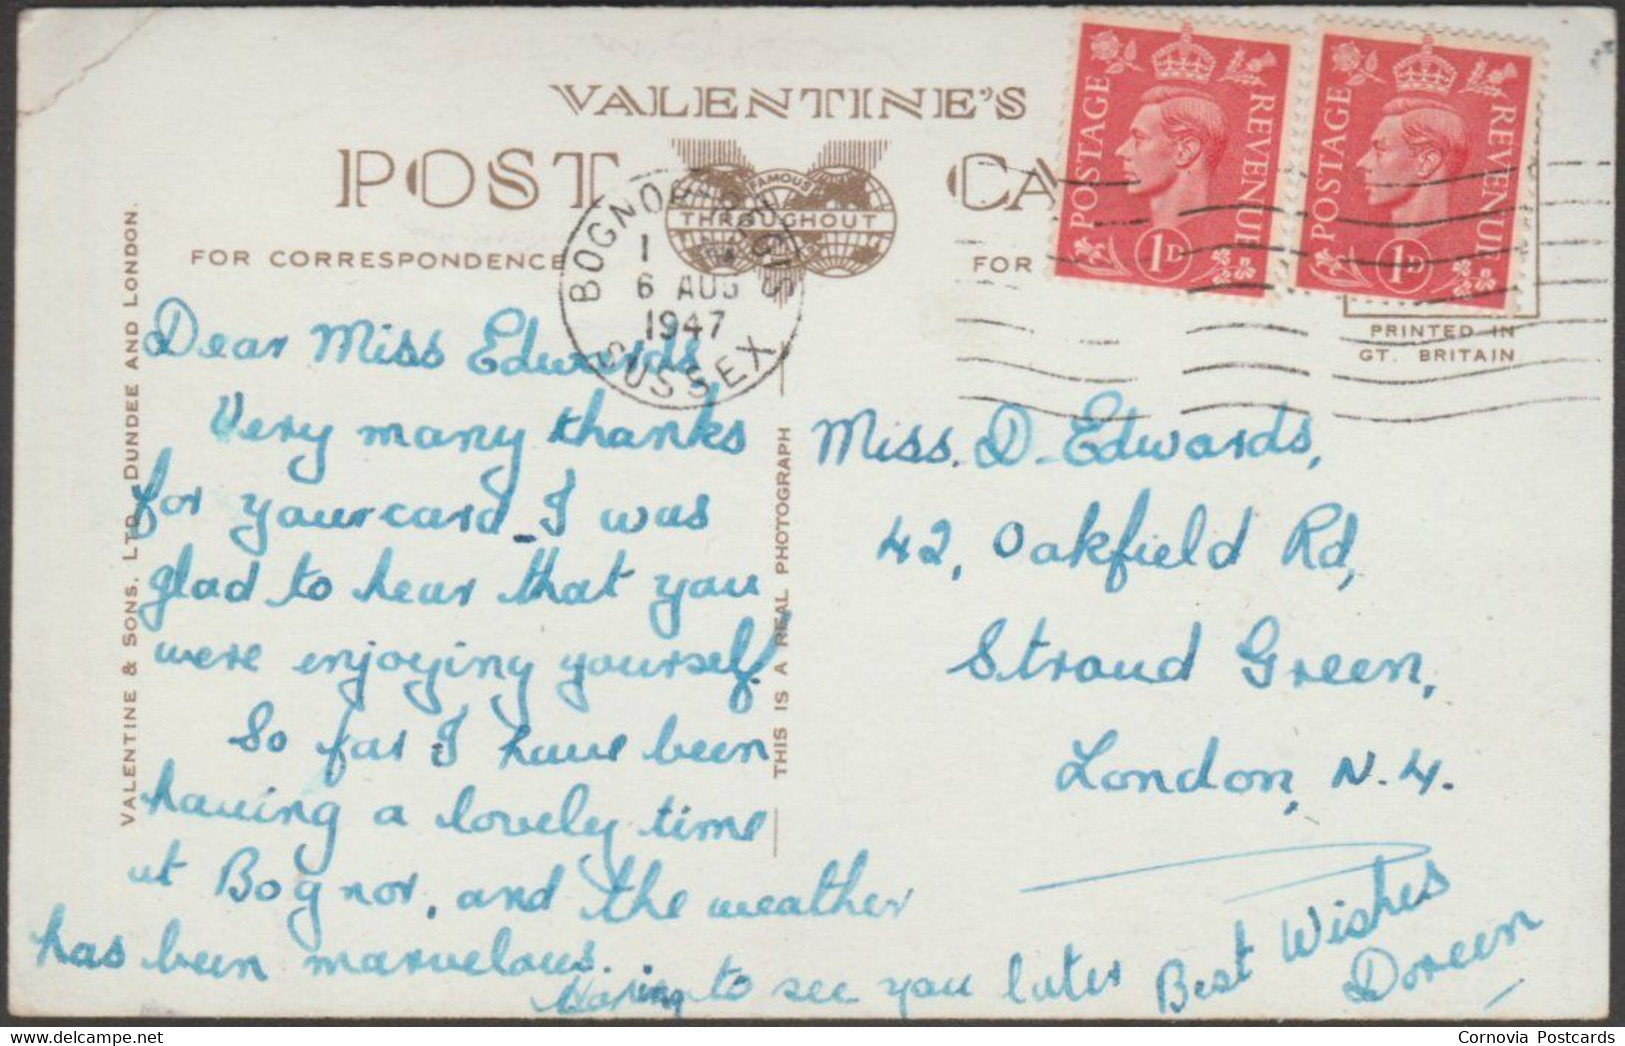 VALENTINE'S
POST CA
FAMOUS
THROUGHOUT
FOR CORRESPONDENCE
FOR
BOGNOR REGIS
6 AUG
1947
SUSSEX
POSTAGE REVENUE
1D
POSTAGE REVENUE
1D
PRINTED IN
GT. BRITAIN
VALENTINE & SONS. LTD. DUNDEE AND LONDON.
THIS IS A REAL PHOTOGRAPH
Dear Miss Edwards,
Very many thanks
for your card. I was
glad to hear that you
were enjoying yourself.
So far I have been
having a lovely time
at Bognor, and the weather
has been marvelous.
Hoping to see you later
Best Wishes
Doreen
Miss. D. Edwards,
42, Oakfield Rd,
Stroud Green,
London, N.4.
Cornovia Postcards